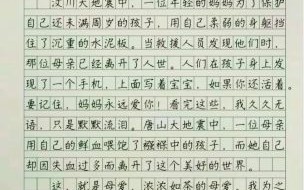 汶川大地震中，一位年轻的妈妈为了保护
自己还未满周岁的孩子，用自己柔弱的身躯挡
住了沉重的水泥板。当救援人员发现他们时，
那位母亲已经离开了人世。人们在孩子身上发
现了一个手机，上面写着宝宝，如果你还活着。
要记住，妈妈永远爱你！看完这些，我久久无
语，只是默默流泪。唐山大地震中，一位母亲
用自己的鲜血喂饱了襁褓中的孩子，而她自己
却因失血过多而离开了这个美好的世界。
这，就是母爱，浓浓如茶的母爱，我为